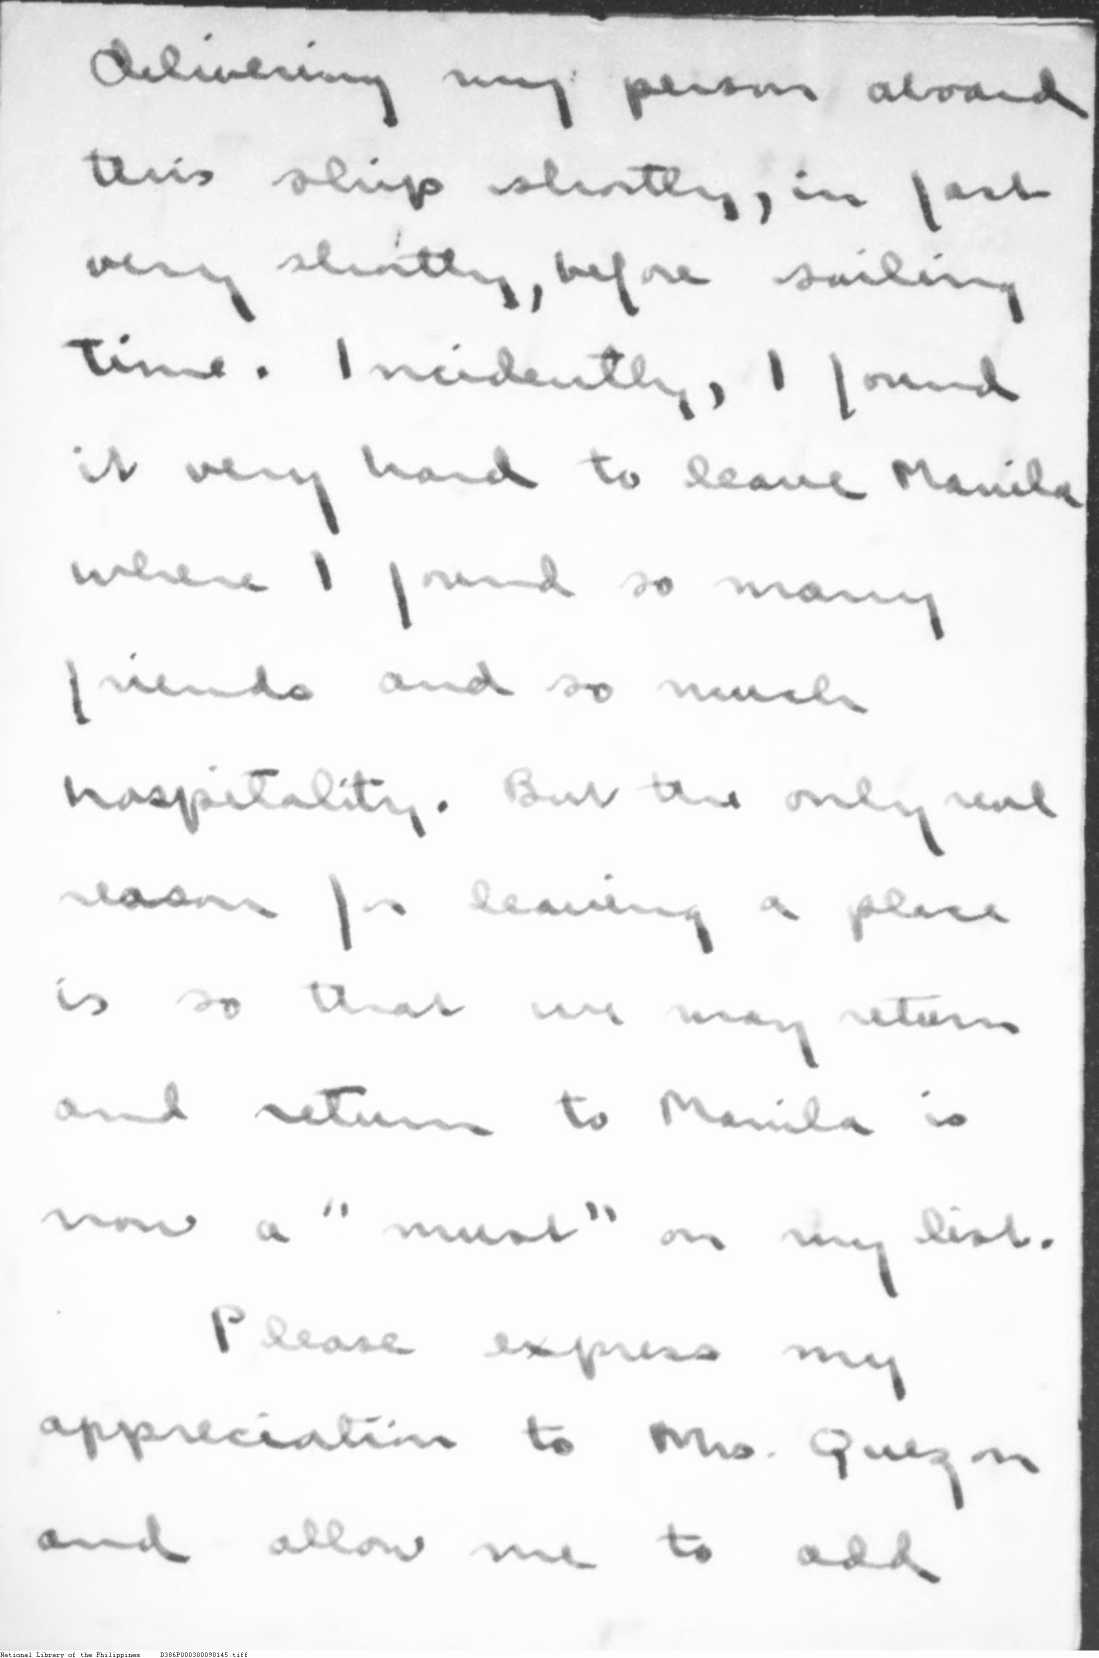 delivering my person aboard
this ship shortly, in fact
very shortly, before sailing
time. Incidently, I found
it very hard to leave Manila
where I found so many
friends and so much
hospitality. But the only real
reason for leaving a place
is so that we may return
and return to Manila is
now a "must" on my list.
Please express my
appreciation to Mrs. Quezon
and allow me to add
National Library of the Philippines D386P000300090145.tiff